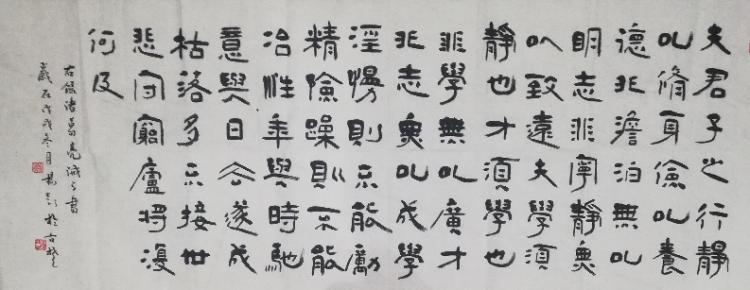 夫君子之行靜
以脩身儉以養
德非澹泊無以
明志非寧靜無
以致遠夫學須
靜也才須學也
非學無以廣才
非志無以成學
淫慢則不能勵
精險躁則不能
冶性年與時馳
意與日去遂成
枯落多不接世
悲守窮廬將復
何及
右錄諸葛亮誡子書
歲在戊戌冬月楊於古